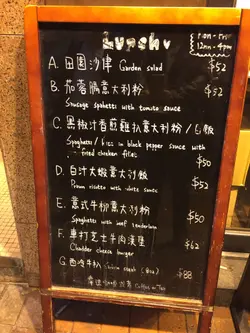 Lunch
Mon - Fri
12nn - 4pm
A. 田園沙律 Garden salad $52
B. 茄蓉腸意大利粉 $52
Sausage spahetti with tomato sauce
C. 黑椒汁香煎雞扒意大利粉/飯
Spaghetti / rice in black pepper sauce with
fried chicken fillet $50
D. 白汁大蝦意大利飯 $52
Prawn risotto with white sauce
E. 意式牛柳意大利粉 $50
Spaghetti with beef tenderloin
F. 車打芝士牛肉漢堡 $62
Chadder cheese burger
G. 西冷牛扒 Sirloin steak $88
Coffee or Tea